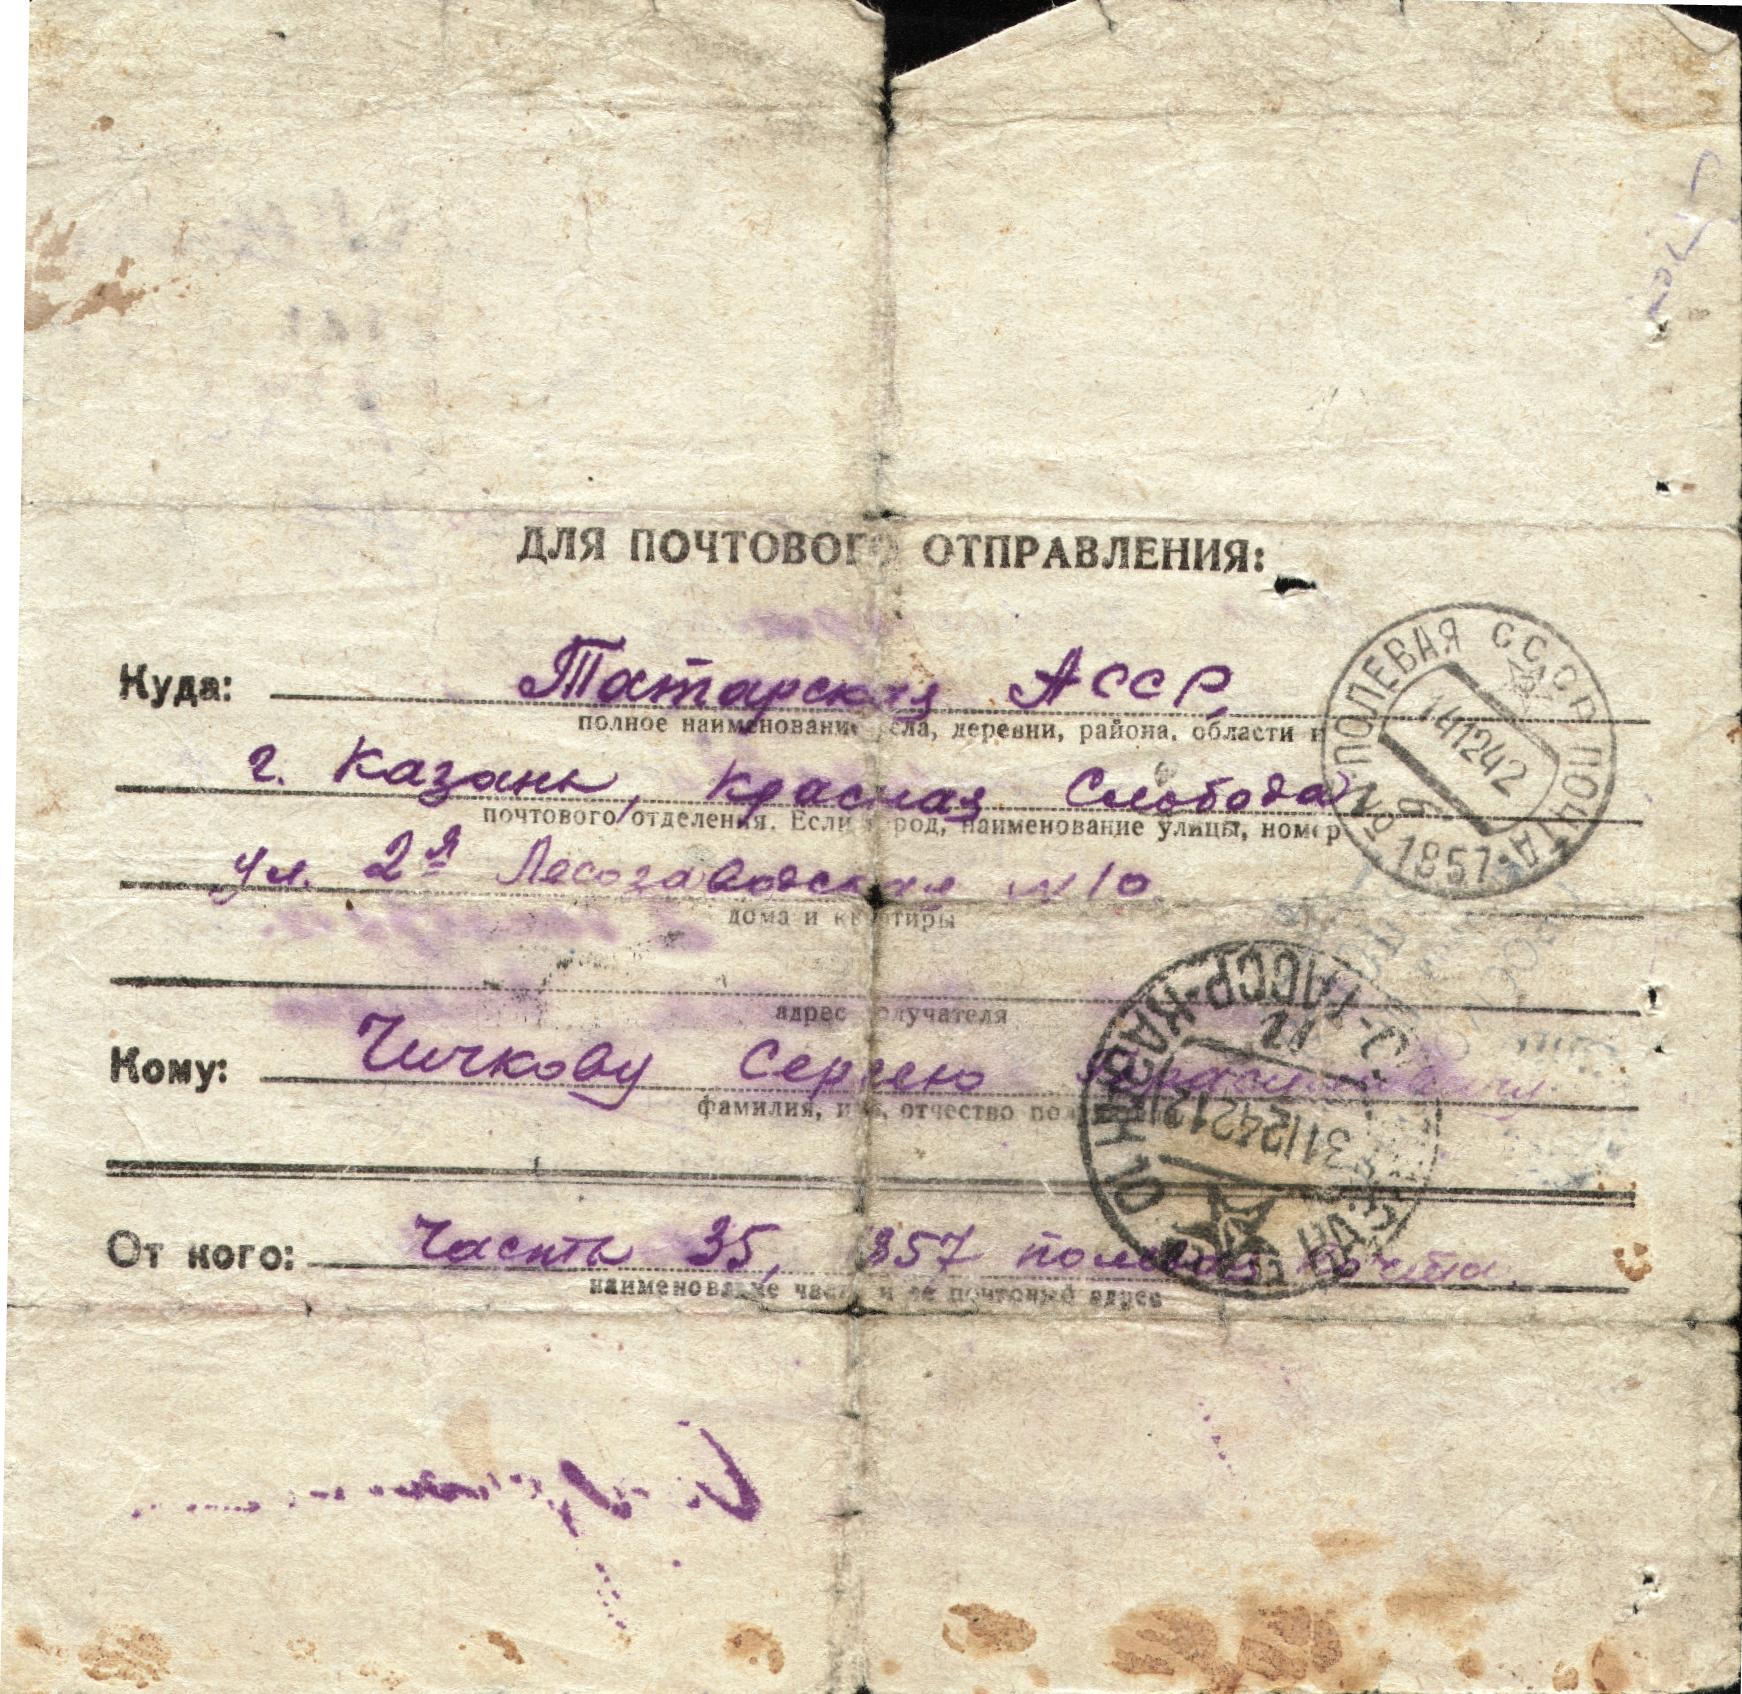 ДЛЯ ПОЧТОВОГО ОТПРАВЛЕНИЯ:
Куда: Татарская АССР,
полное наименование села, деревни, района, области и
г. Казань, Красная Слобода
почтового отделения. Если город, наименование улицы, номер
ул. 2я Лесозаводская №10.
дома и квартиры
адрес получателя
Кому: Чичкову Сергею Герасимовичу
фамилия, имя, отчество
От кого: Часть 35, 1857 полевая почта.
наименование части и ее почтовый адрес
ПОЛЕВАЯ ПОЧТА
СССР
141242
1857
КАЗАНЬ
311242